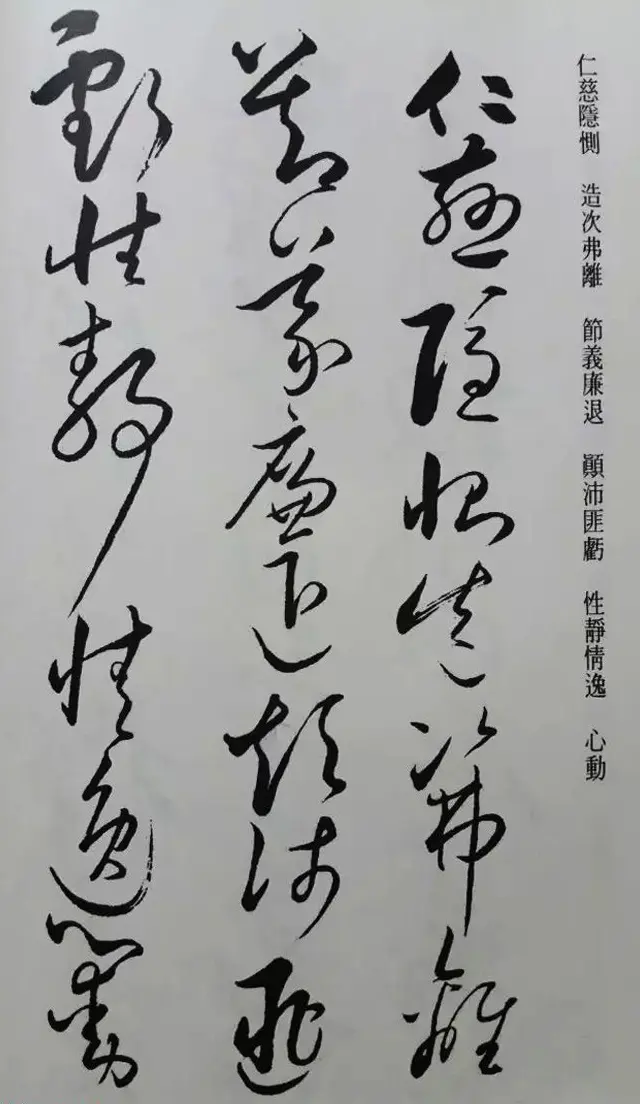 仁慈隱惻　造次弗離　節義廉退　顛沛匪虧　性靜情逸　心動
仁慈隱惻造次弗離
節義廉退顛沛匪
虧性靜情逸心動